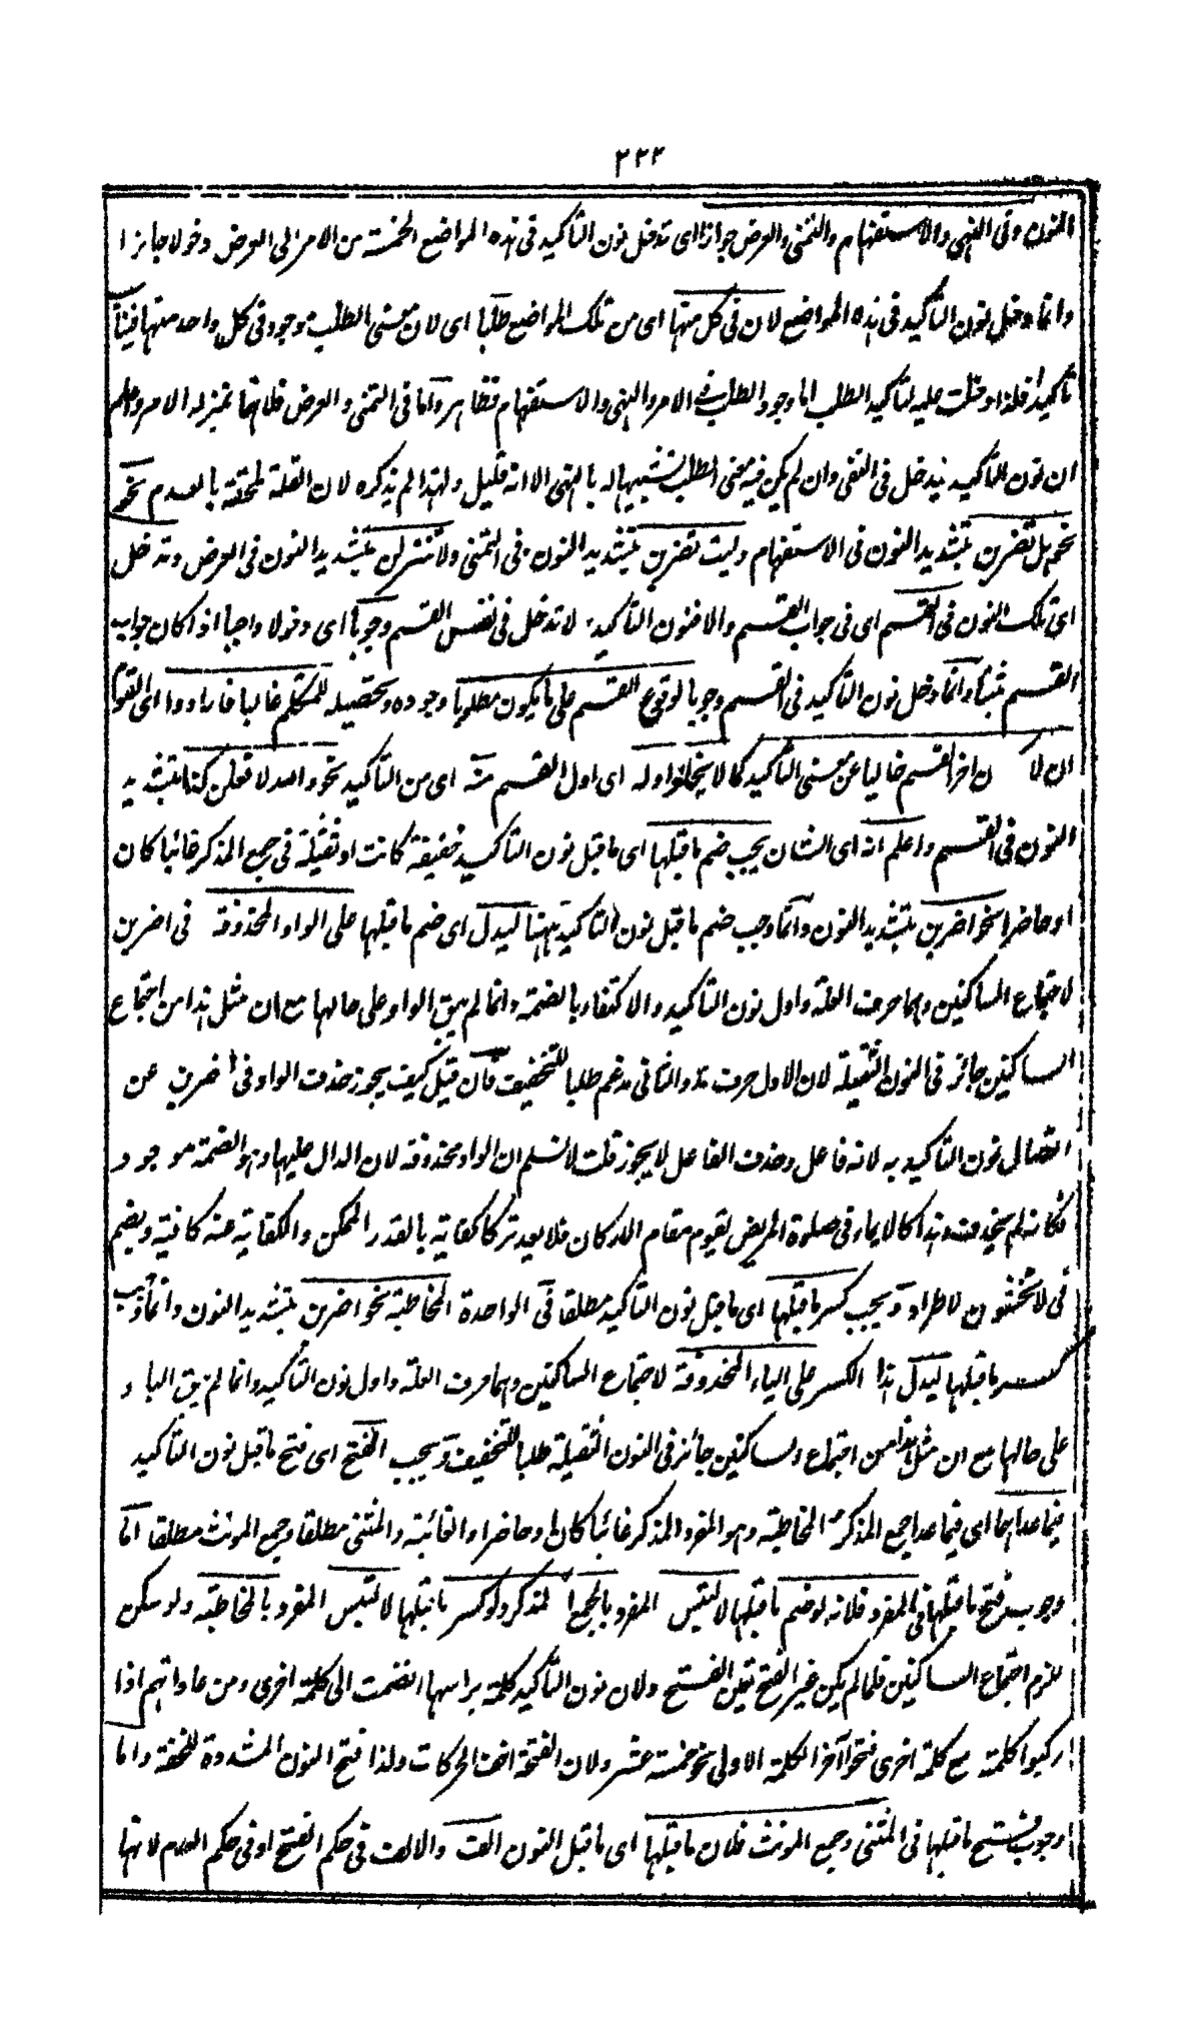 ٢٢٢
النون وفى النهى والاستفهام والتمنى والعرض جوازا اى تدخل نون التاكيد فى هذه المواضع الخمسة من الامر الى العرض دخولا جائزا
وانما دخل نون التاكيد فى هذه المواضع لان فى كل منها اى من تلك المواضع طلبا اى لان معنى الطلب موجود فى كل واحد منها فيناسب
تاكيدا فلذا دخلت عليه لتاكيد الطلب اما وجود الطلب فى الامر والنهى والاستفهام فظاهر واما فى التمنى والعرض فلانهما بمنزلة الامر واعلم
ان نون التاكيد يدخل فى النفى وان لم يكن فيه معنى الطلب تشبيها له بالنهى الا انه قليل ولهذا لم يذكره لان القلة ملحقة بالعدم نحو
نحو هل تضربن بتشديد النون فى الاستفهام وليت تضربن بتشديد النون فى التمنى والا تنزلن بتشديد النون فى العرض وتدخل
اى تلك النون فى القسم اى فى جواب القسم والا فنون التاكيد لا تدخل فى نفس القسم وجوبا اى دخولا واجبا اذا كان جواب
القسم مثبتا وانما دخل نون التاكيد فى القسم وجوبا لوقوع القسم على ما يكون مطلوبا وجوده وتحصيله للمتكلم غالبا فارادوا
ان لا يكون اخر القسم خاليا عن معنى التاكيد كما لا يخلو اوله اى اول القسم منه اى من التاكيد نحو والله لافعلن كذا بتشديد
النون فى القسم واعلم انه اى الشان يجب ضم ما قبلها اى ما قبل نون التاكيد خفيفة كانت او ثقيلة فى جمع المذكر غائبا كان
او حاضرا نحو اضربن بتشديد النون وانما وجب ضم ما قبل نون التاكيد ههنا ليدل اى ضم ما قبلها على الواو المحذوفة فى اضربن
لاجتماع الساكنين وهما حرف العلة واول نون التاكيد والاكتفاء بالضمة وانما لم يبق الواو على حالها مع ان مثل هذا من اجتماع
الساكنين جائز فى النون الثقيلة لان الاول حرف مد والثانى مدغم طلبا للتخفيف فان قيل كيف يجوز حذف الواو فى اضربن عن
اتصال نون التاكيد به لانه فاعل وحذف الفاعل لا يجوز قلت لا نسلم ان الواو محذوفة لان الدال عليها وهو الضمة موجود
فكانه لم يحذف وهذا كالايماء فى صلوة المريض يقوم مقام الاركان فلا يعد تركا كفاية بالقدر الممكن والكفاية عنه كافية ويضم
فى لا تخشون لاطراد ويجب كسر ما قبلها اى ما قبل نون التاكيد مطلقا فى الواحدة المخاطبة نحو اضربن بتشديد النون وانما وجب
كسر ما قبلها ليدل هذا الكسر على الياء المحذوفة لاجتماع الساكنين وهما حرف العلة واول نون التاكيد وانما لم يبق الياء
على حالها مع ان مثل هذا من اجتماع الساكنين جائز فى النون الثقيلة طلبا للتخفيف ويجب الفتح اى فتح ما قبل نون التاكيد
فيما عداهما اى فيما عدا جمع المذكر والمخاطبة وهو المفرد المذكر غائبا كان او حاضرا والغائبة والمثنى مطلقا وجمع المونث مطلقا اما
وجوب فتح ما قبلها فى المفرد فلانه لو ضم ما قبلها لالتبس المفرد بالجمع المذكر ولو كسر ما قبلها لالتبس المفرد بالمخاطبة ولو سكن
للزم اجتماع الساكنين فلما لم يكن غير الفتح تعين الفتح ولان نون التاكيد كلمة براسها انضمت الى كلمة اخرى ومن عاداتهم اذا
ركبوا كلمة مع كلمة اخرى فتحوا آخر الكلمة الاولى نحو خمسة عشر ولان الفتحة اخف الحركات ولذا فتح النون المشددة للخفة واما
وجوب فتح ما قبلها فى المثنى وجمع المونث فلان ما قبلها اى ما قبل النون الف والالف فى حكم الفتح او فى حكم العدم لانها